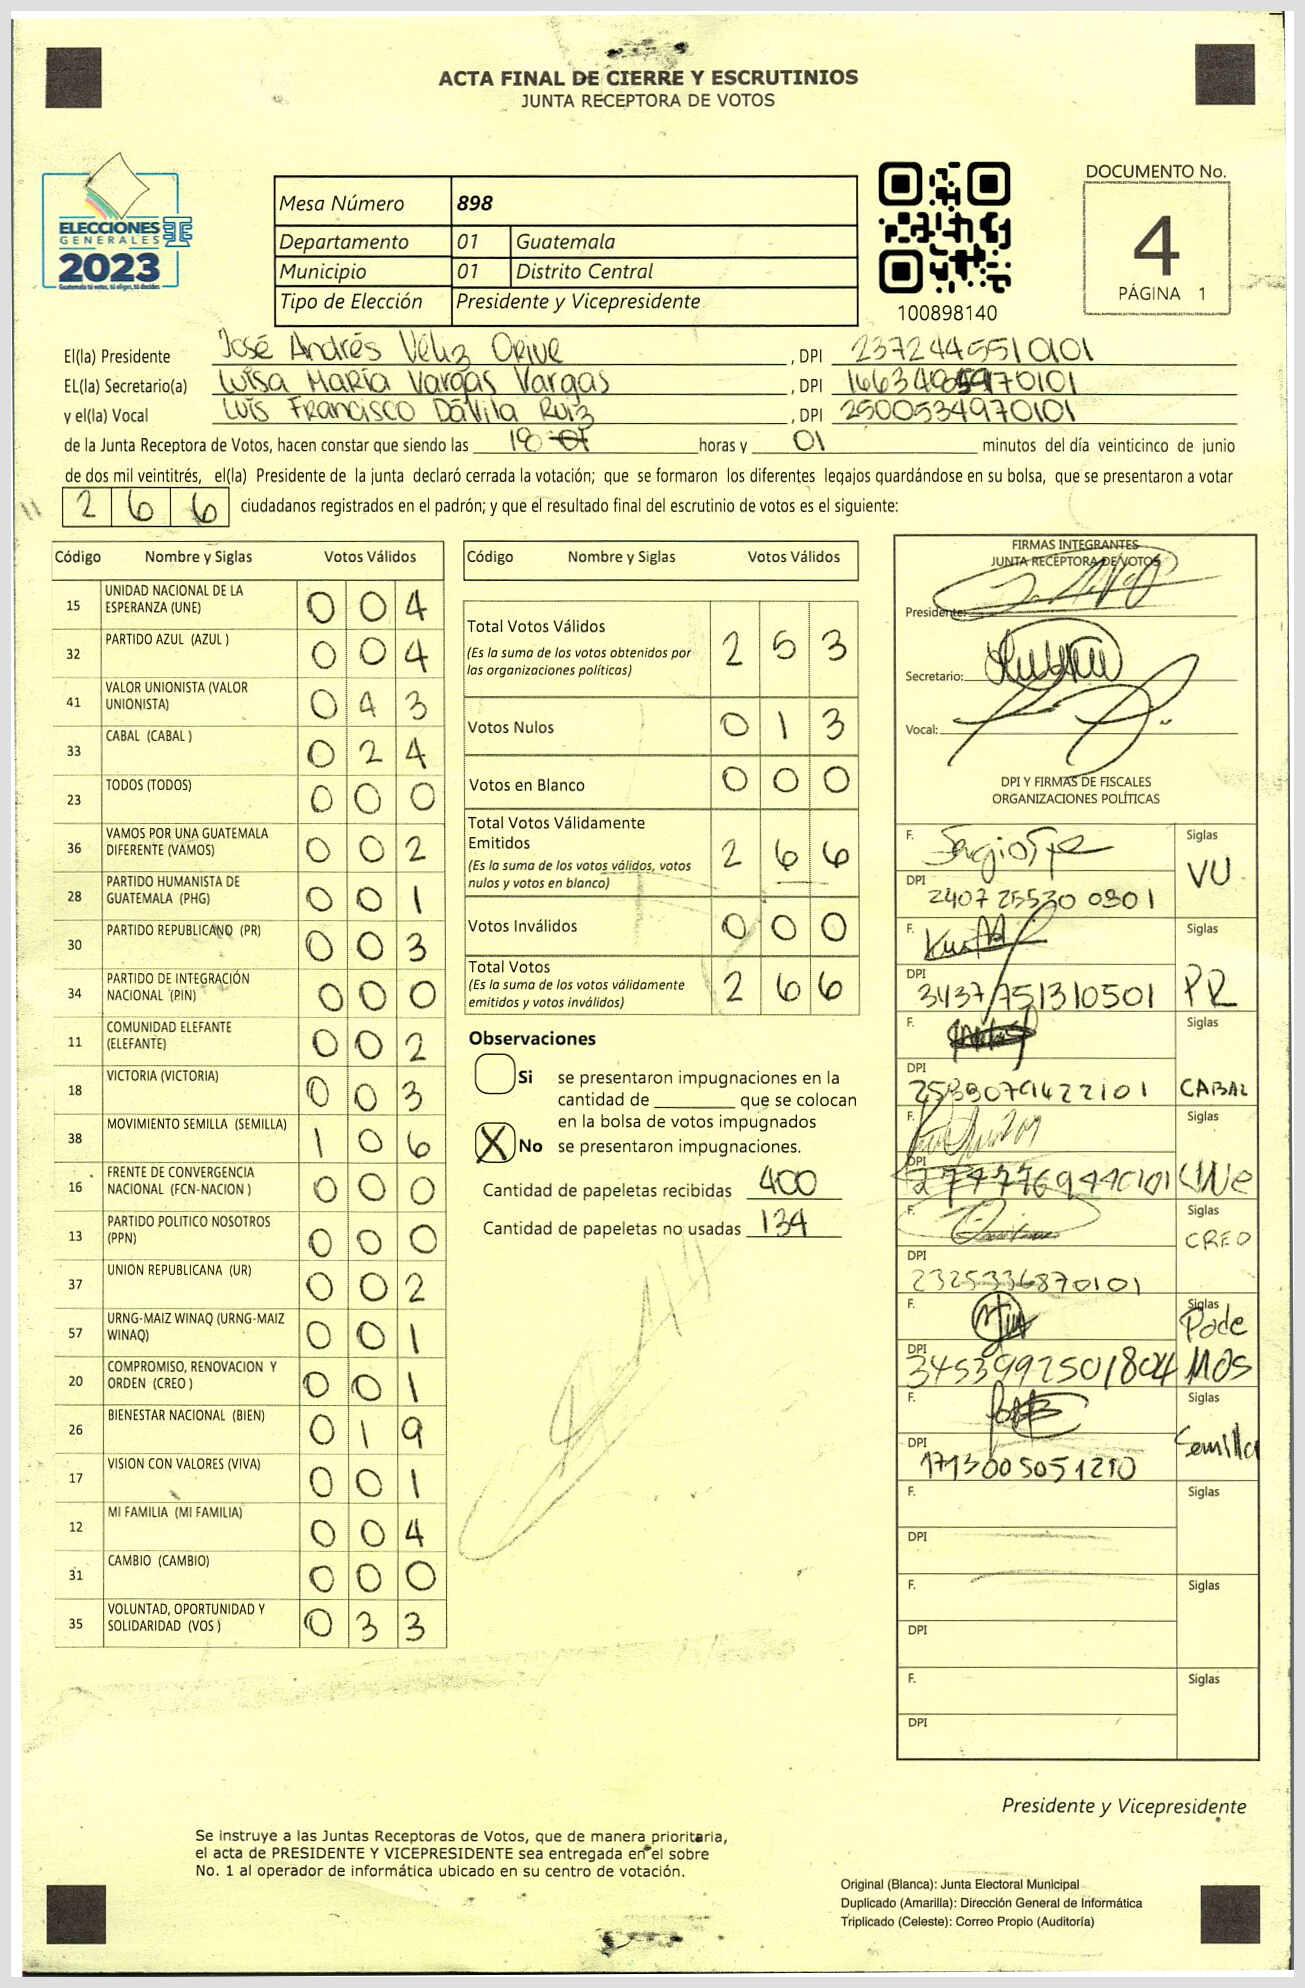 ACTA FINAL DE CIERRE Y ESCRUTINIOS
JUNTA RECEPTORA DE VOTOS
ELECCIONES
GENERALES
2023
Guatemala tú votas, tú eliges, tú decides.
Mesa Número 898
Departamento 01 Guatemala
Municipio 01 Distrito Central
Tipo de Elección Presidente y Vicepresidente
100898140
DOCUMENTO No.
4
PÁGINA 1
El(la) Presidente José Andrés Véliz Orive , DPI 2372445510101
EL(la) Secretario(a) Luisa María Vargas Vargas , DPI
y el(la) Vocal Luis Francisco Dávila Ruiz , DPI 2500534970101
de la Junta Receptora de Votos, hacen constar que siendo las 18 horas y 01 minutos del día veinticinco de junio
de dos mil veintitrés, el(la) Presidente de la junta declaró cerrada la votación; que se formaron los diferentes legajos guardándose en su bolsa, que se presentaron a votar
266 ciudadanos registrados en el padrón; y que el resultado final del escrutinio de votos es el siguiente:
Código Nombre y Siglas Votos Válidos
15 UNIDAD NACIONAL DE LA ESPERANZA (UNE) 004
32 PARTIDO AZUL (AZUL ) 004
41 VALOR UNIONISTA (VALOR UNIONISTA) 043
33 CABAL (CABAL ) 024
23 TODOS (TODOS) 000
36 VAMOS POR UNA GUATEMALA DIFERENTE (VAMOS) 002
28 PARTIDO HUMANISTA DE GUATEMALA (PHG) 001
30 PARTIDO REPUBLICANO (PR) 003
34 PARTIDO DE INTEGRACIÓN NACIONAL (PIN) 000
11 COMUNIDAD ELEFANTE (ELEFANTE) 002
18 VICTORIA (VICTORIA) 003
38 MOVIMIENTO SEMILLA (SEMILLA) 106
16 FRENTE DE CONVERGENCIA NACIONAL (FCN-NACION ) 000
13 PARTIDO POLITICO NOSOTROS (PPN) 000
37 UNION REPUBLICANA (UR) 002
57 URNG-MAIZ WINAQ (URNG-MAIZ WINAQ) 001
20 COMPROMISO, RENOVACION Y ORDEN (CREO ) 001
26 BIENESTAR NACIONAL (BIEN) 019
17 VISION CON VALORES (VIVA) 001
12 MI FAMILIA (MI FAMILIA) 004
31 CAMBIO (CAMBIO) 000
35 VOLUNTAD, OPORTUNIDAD Y SOLIDARIDAD (VOS ) 033
Código Nombre y Siglas Votos Válidos
Total Votos Válidos 253
(Es la suma de los votos obtenidos por
las organizaciones políticas)
Votos Nulos 013
Votos en Blanco 000
Total Votos Válidamente
Emitidos 266
(Es la suma de los votos válidos, votos
nulos y votos en blanco)
Votos Inválidos 000
Total Votos 266
(Es la suma de los votos válidamente
emitidos y votos inválidos)
Observaciones
Si se presentaron impugnaciones en la
cantidad de ________ que se colocan
en la bolsa de votos impugnados
X No se presentaron impugnaciones.
Cantidad de papeletas recibidas 400
Cantidad de papeletas no usadas 134
FIRMAS INTEGRANTES
JUNTA RECEPTORA DE VOTOS
Presidente:
Secretario:
Vocal:
DPI Y FIRMAS DE FISCALES
ORGANIZACIONES POLÍTICAS
F. Siglas VU
DPI 2407 25530 0301
F. Siglas PR
DPI 3437751310501
F. Siglas CABAL
DPI
F. Siglas UNe
DPI
F. Siglas CREO
DPI 2325336870101
F. Siglas PodeMOS
DPI 3453992501804
F. Siglas Semilla
DPI
F. Siglas
DPI
F. Siglas
DPI
F. Siglas
DPI
Presidente y Vicepresidente
Se instruye a las Juntas Receptoras de Votos, que de manera prioritaria,
el acta de PRESIDENTE Y VICEPRESIDENTE sea entregada en el sobre
No. 1 al operador de informática ubicado en su centro de votación.
Original (Blanca): Junta Electoral Municipal
Duplicado (Amarilla): Dirección General de Informática
Triplicado (Celeste): Correo Propio (Auditoría)